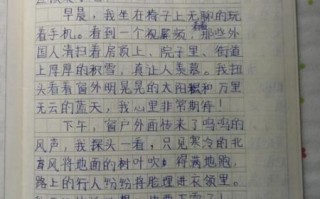 早晨，我坐在椅子上无聊的玩
着手机。看到一个视屏频，那些外
国人清扫着房顶上、院子里、街道
上厚厚的积雪，真让人羡慕。我扭
头看看窗外明晃晃的太阳和万里
无云的蓝天，我心里非常期待！
下午，窗户外面传来了呜呜的
风声，我探头一看，只见寒冷的北
风将地面的树叶吹得满地跑，
路上的行人纷纷将脸埋进衣领里。